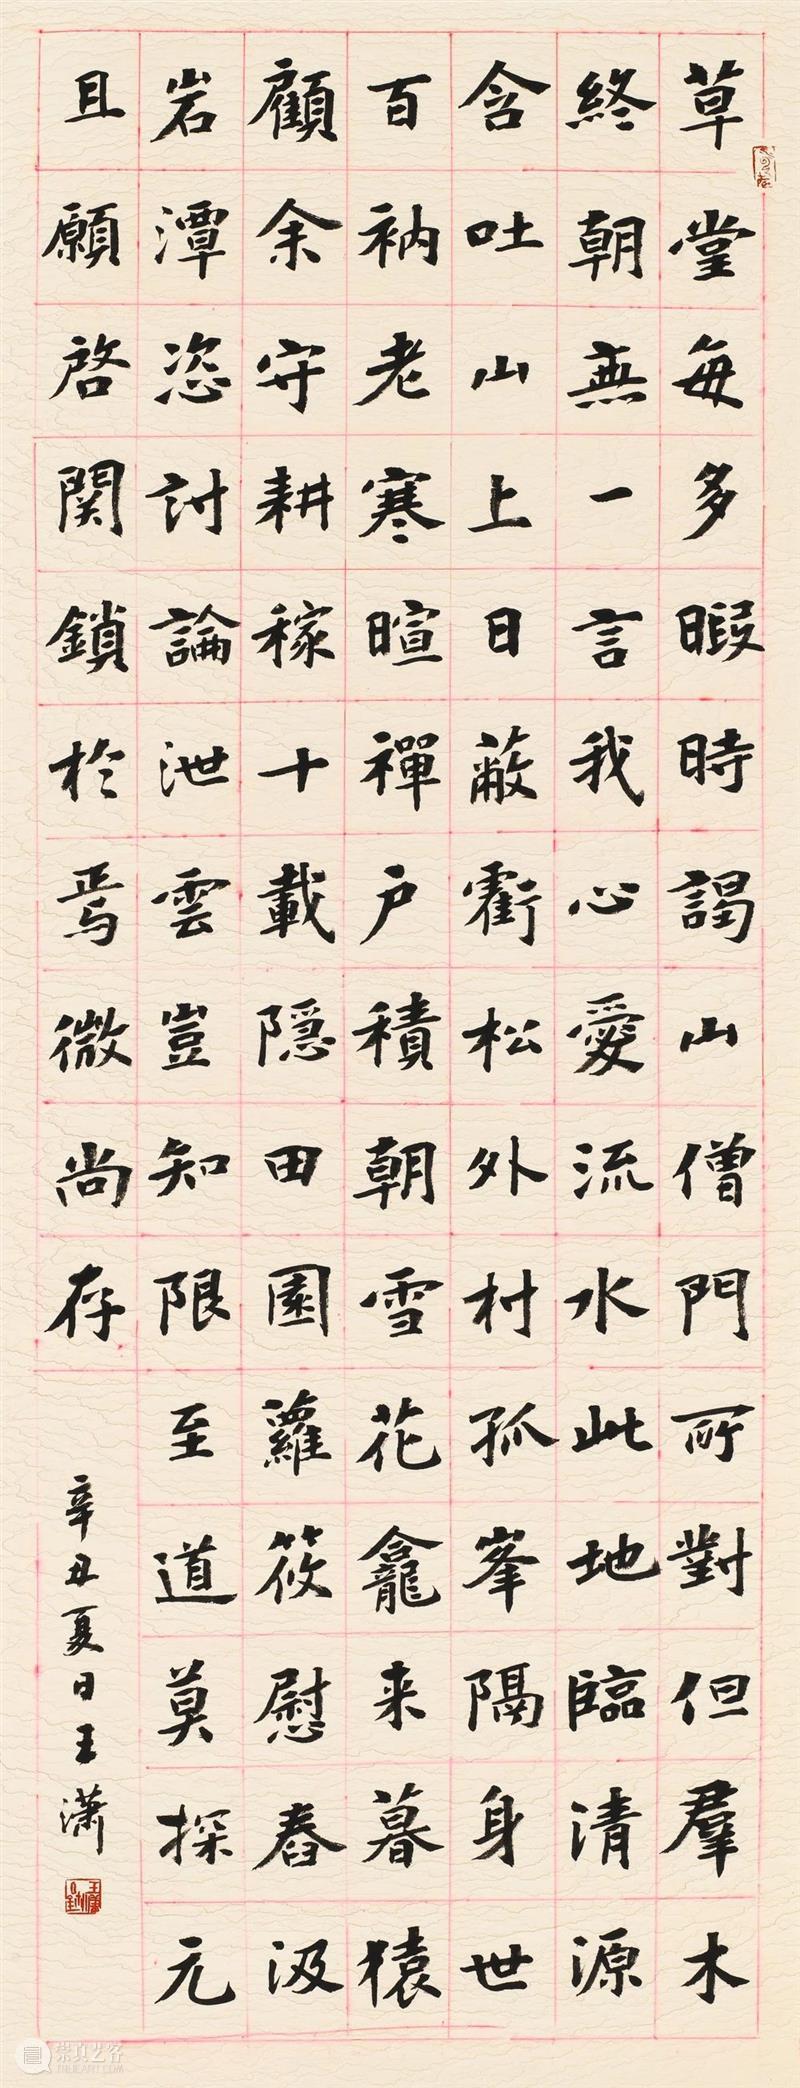 草堂每多暇時謁山僧門所對但羣木
終朝無一言我心愛流水此地臨清源
含吐山上日蔽衢松外村孤峯隔身世
百衲老寒暄禪户積朝雪花龕来暮猿
顧余守耕稼十載隱田園蘿筱慰舂汲
岩潭恣討論泄雲豈知限至道莫探元
且願啓関鎖於焉微尚存
辛丑夏日王潇
崇真艺客